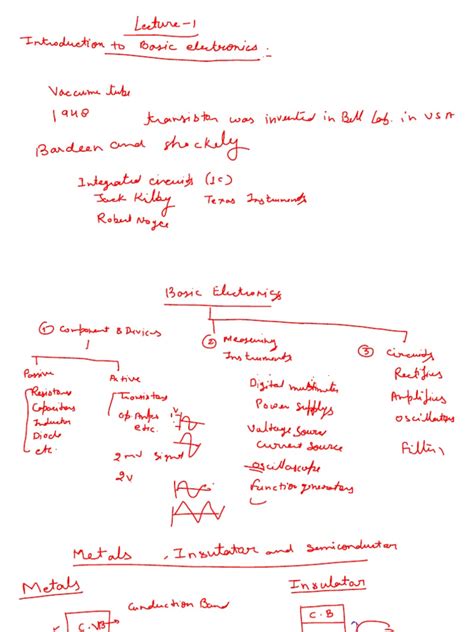 Lecture-1
Introduction to Basic electronics :-
Vaccume tube
1948 transistor was invented in Bell Lab. in USA
Bardeen and shockely
Integrated circuits (IC)
Jack Kilby Texas Instruments
Robert Noyce
Basic Electronics
① Component & Devices
② Measuring Instruments
③ Circuits
Passive
Resistors
Capacitors
Inductor
Diode
etc.
Active
Transistors
Op Amps
etc.
1V
2mV Signal
2V
Digital multimeter
Power supplys
Voltage source
Current source
oscilloscope
Function generators
Rectifiers
Amplifiers
oscillators
Filter,
Metals , Insutator and semiconductor
Metals
Conduction Band
C.VB
Insulator
C.B